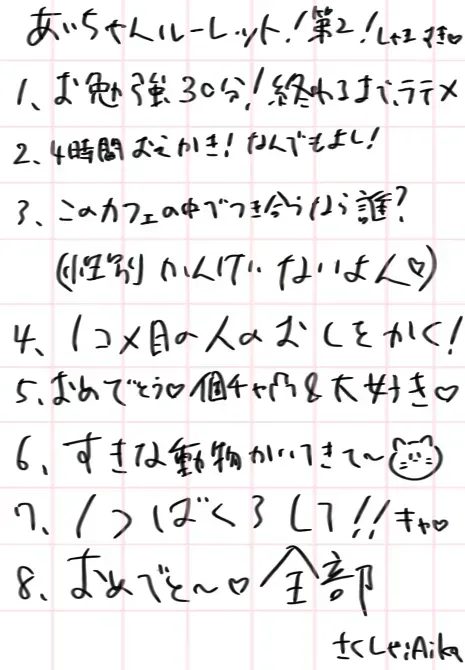 あいちゃんルーレット!第2!しゃまずき♡
1、お勉強30分!終わるまで、ララダメ
2、4時間おえかき!なんでもよし!
3、このカフェの中でつき合うなら誰?
(性別かんけいないよん♡)
4、1コメ目の人のおしをかく!
5、おめでとう♡個チャ凸&大好き♡
6、すきな動物かいてきて〜
7、1つばくろして!!キャ♡
8、おめでと〜♡全部
さくしゃ:Aika